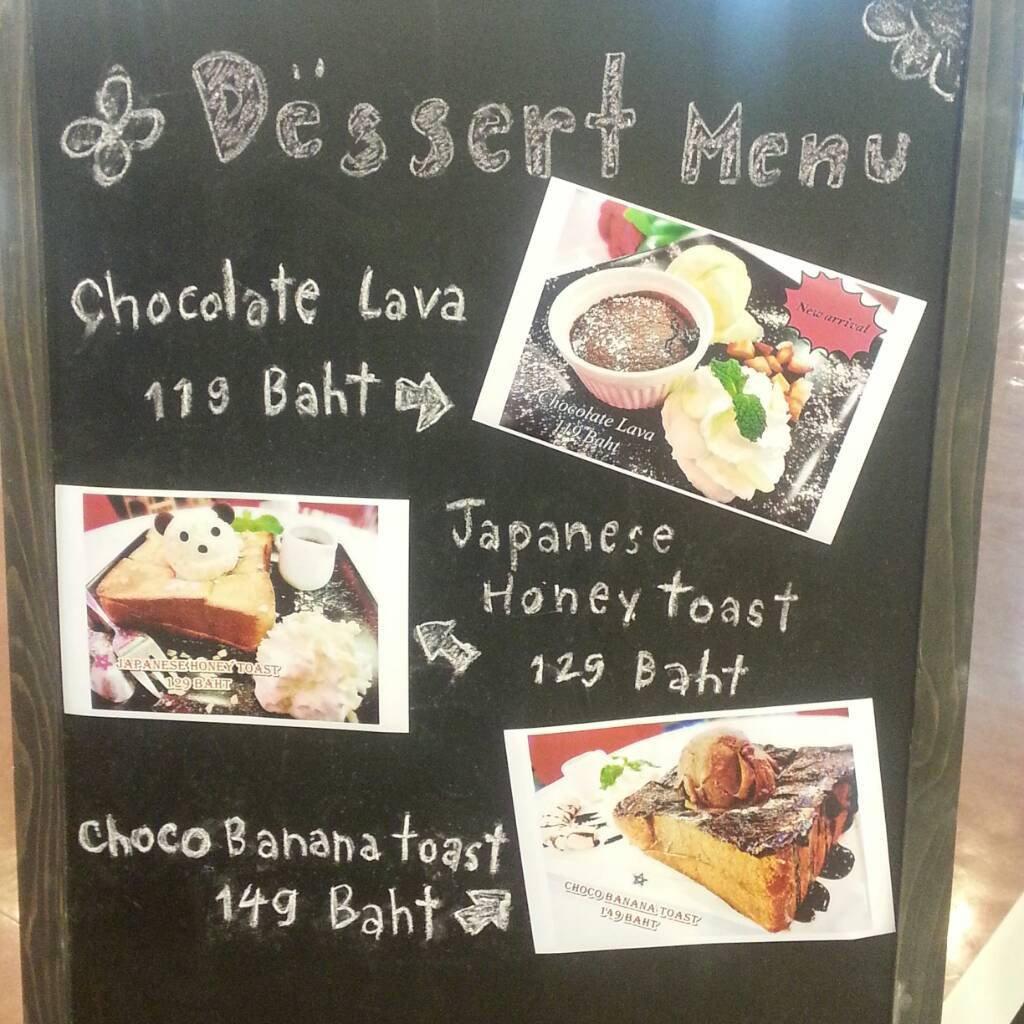 Dëssert Menu
Chocolate Lava
119 Baht
New arrival
Chocolate Lava
119 Baht
Japanese
Honey toast
129 Baht
JAPANESE HONEY TOAST
129 BAHT
choco Banana toast
149 Baht
CHOCO BANANA TOAST
149 BAHT